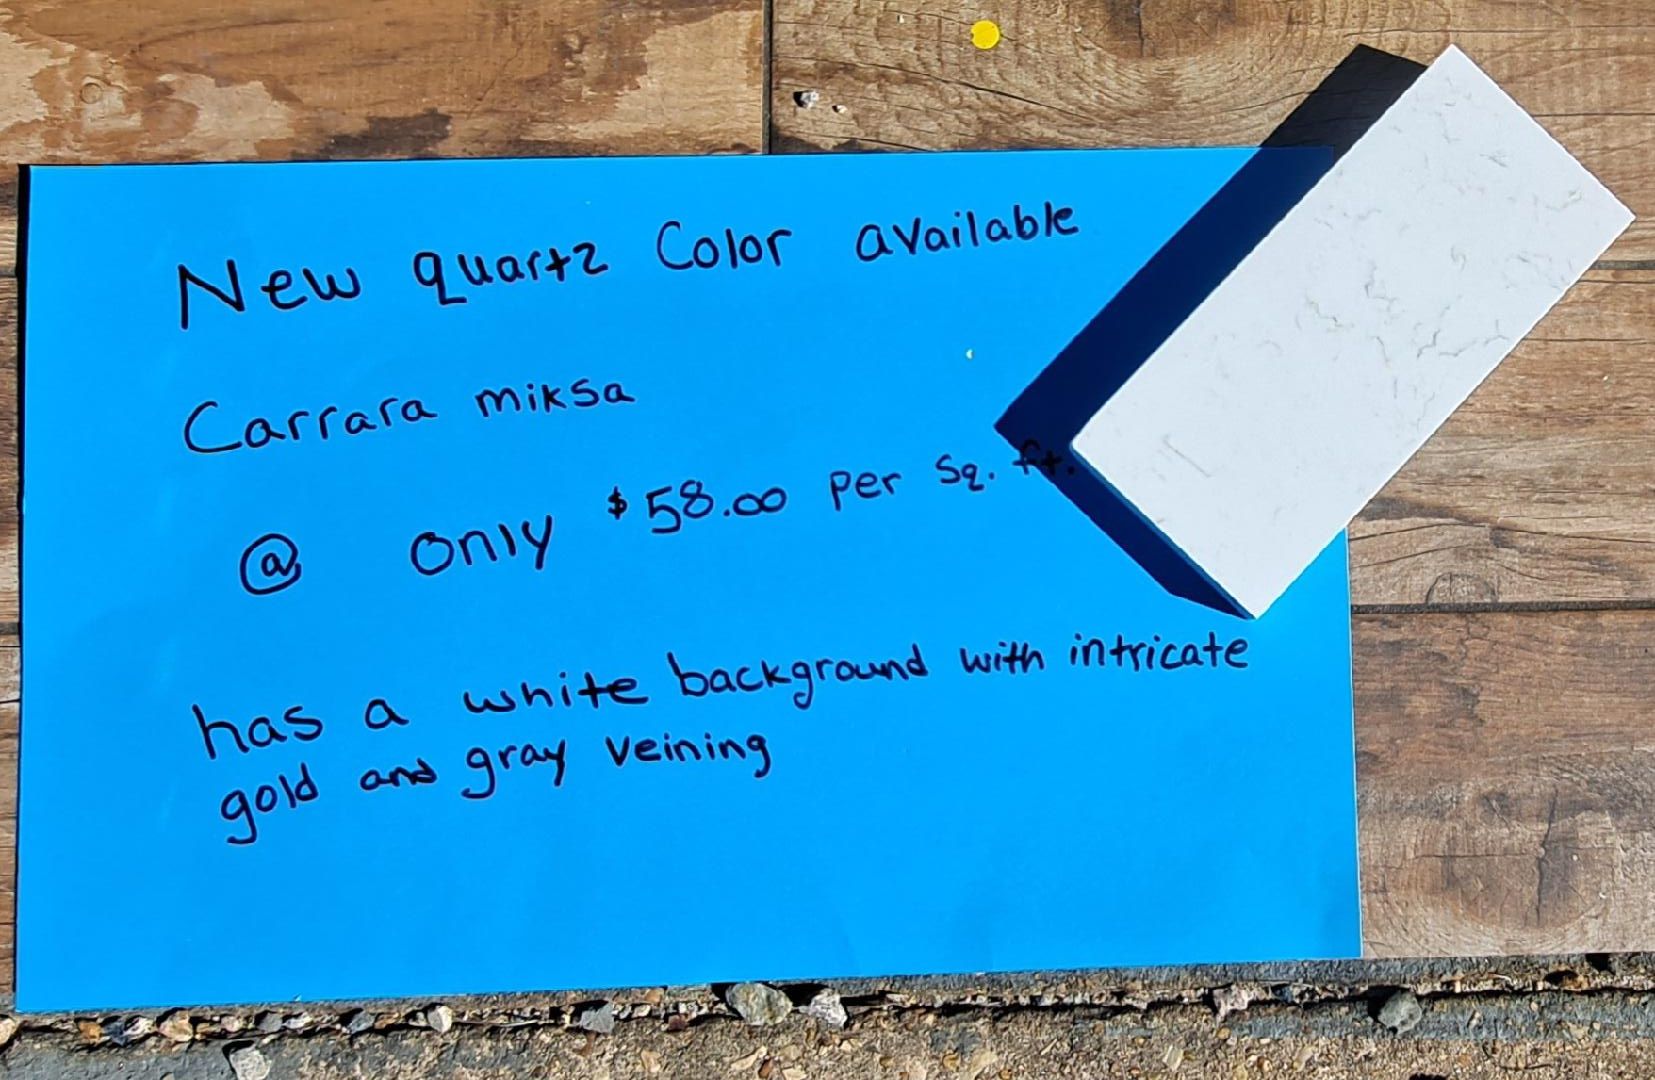 New quartz Color available
Carrara miksa
@ only $58.00 per Sq. ft.
has a white background with intricate
gold and gray veining